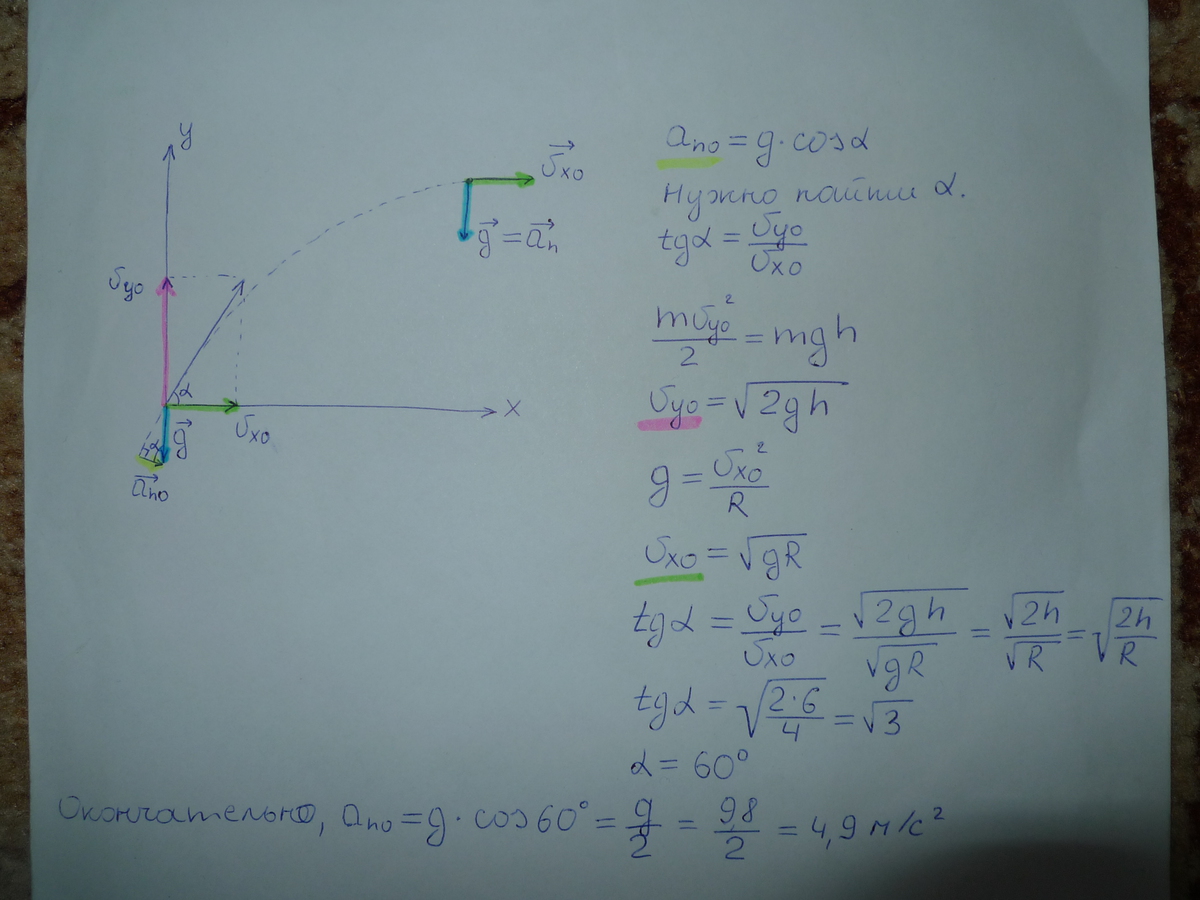 y
v⃗x0
g⃗ = a⃗n
vy0
α
x
g⃗
vx0
α
a⃗n0
an0 = g · cosα
Нужно найти α.
tgα = vy0/vx0
mvy0²/2 = mgh
vy0 = √2gh
g = vx0²/R
vx0 = √gR
tgα = vy0/vx0 = √2gh/√gR = √2h/√R = √(2h/R)
tgα = √(2·6/4) = √3
α = 60°
Окончательно, an0 = g · cos60° = g/2 = 9,8/2 = 4,9 м/с²